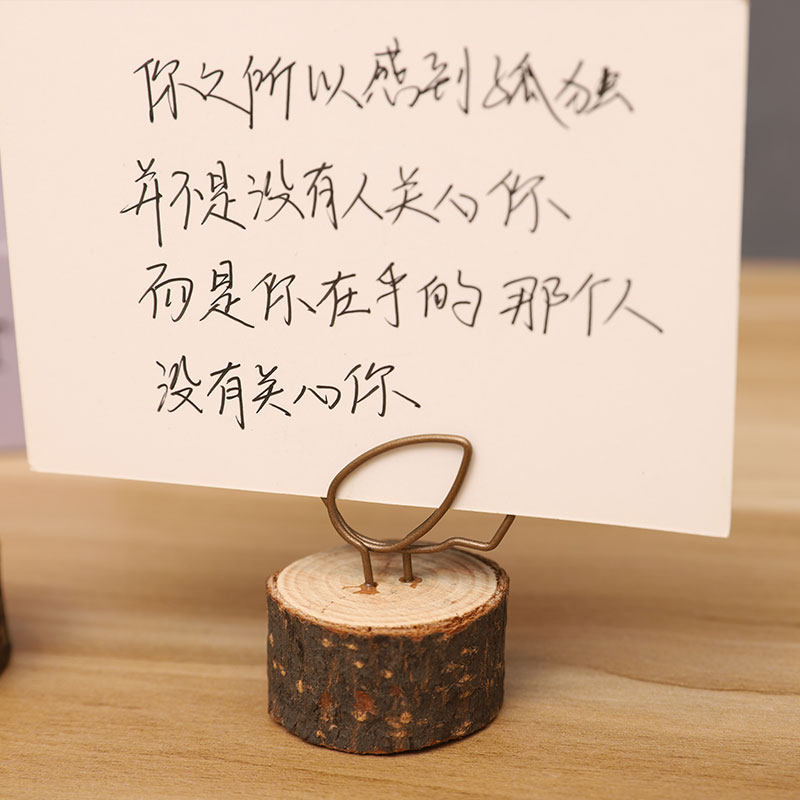 你之所以感到孤独
并不是没有人关心你
而是你在乎的那个人
没有关心你